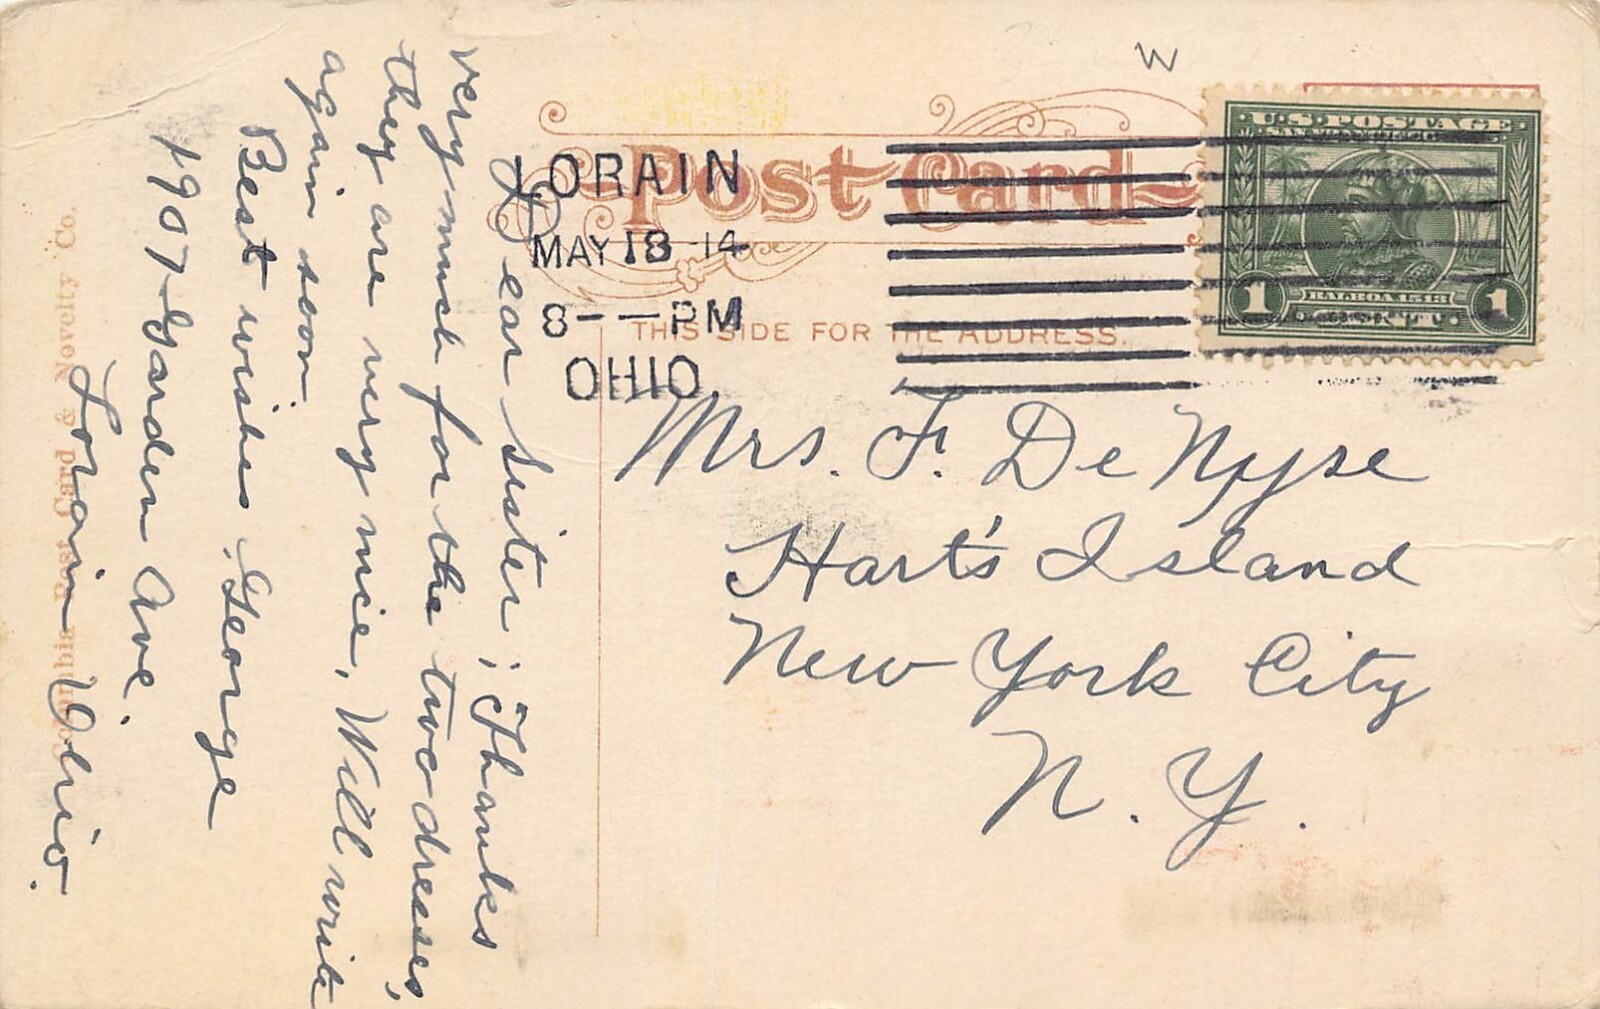 W
Post Card
THIS SIDE FOR THE ADDRESS.
LORAIN
MAY 18 -14
8 - - PM
OHIO
U.S. POSTAGE
BALBOA 1513
1 CENT 1
Mrs. F. De Nyse
Hart's Island
New York City
N. Y.
Dear Sister; Thanks
very much for the two dresses,
they are very nice, Will write
again soon
Best wishes George
1907 Garden Ave.
Lorain Ohio.
Post Card & Novelty Co.